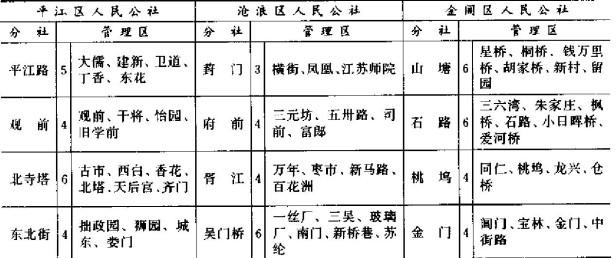 平江区人民公社 沧浪区人民公社 金阊区人民公社
分社 管理区 分社 管理区 分社 管理区
平江路 5 大儒、建新、卫道、丁香、东花
葑门 3 横街、凤凰、江苏师院
山塘 6 星桥、桐桥、钱万里桥、胡家桥、新村、留园
观前 4 观前、干将、怡园、旧学前
府前 4 三元坊、五卅路、司前、富郎
石路 6 三六湾、朱家庄、枫桥、石路、小日晖桥、爱河桥
北寺塔 6 古市、西白、香花、北塔、天后宫、齐门
胥江 4 万年、枣市、新马路、百花洲
桃坞 4 同仁、桃坞、龙兴、仓桥
东北街 4 拙政园、狮园、城东、娄门
吴门桥 6 一丝厂、三吴、玻璃厂、南门、新桥巷、苏纶
金门 4 阊门、宝林、金门、中街路